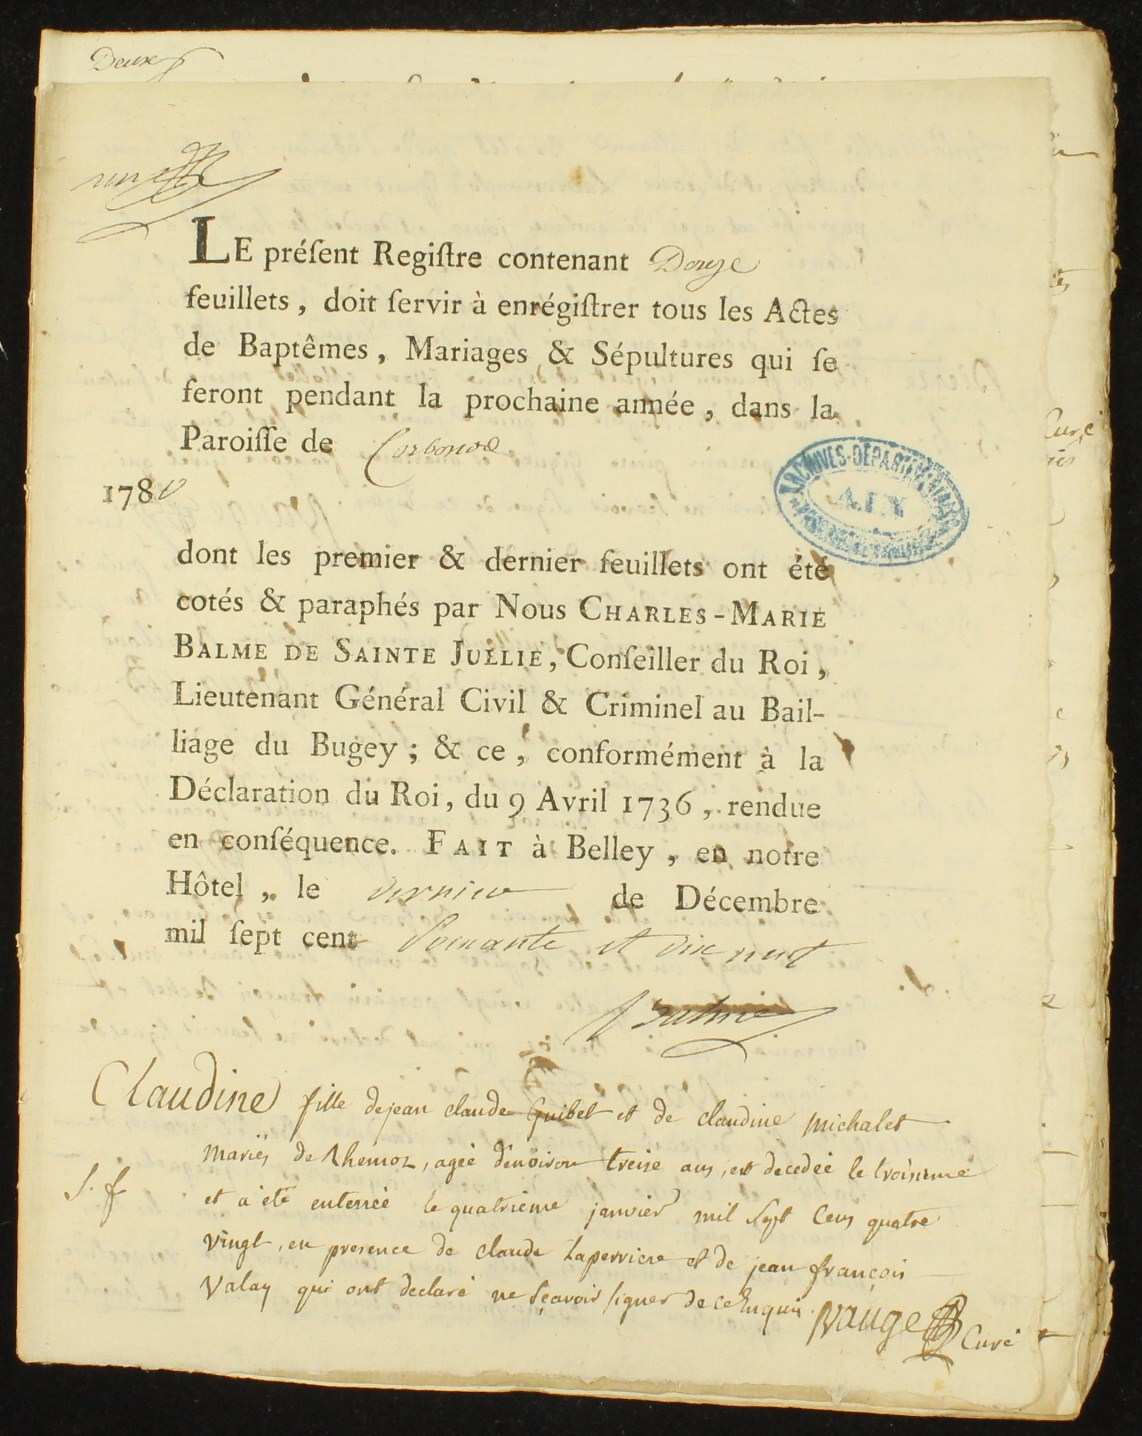 Deux
un
LE préſent Regiſtre contenant Douze
feuillets, doit ſervir à enrégiſtrer tous les Actes
de Baptêmes, Mariages & Sépultures qui ſe
feront pendant la prochaine année, dans la
Paroiſſe de Corbonod
1780
ARCHIVES DÉPARTEMENTALES
AIN
dont les premier & dernier feuillets ont été
cotés & paraphés par Nous CHARLES-MARIE
BALME DE SAINTE JULLIE, Conſeiller du Roi,
Lieutenant Général Civil & Criminel au Bail-
liage du Bugey; & ce, conformément à la
Déclaration du Roi, du 9 Avril 1736, rendue
en conſéquence. FAIT à Belley, en notre
Hôtel, le dernier de Décembre
mil ſept cent soixante et dix neuf
Claudine fille de jean claude Guibet et de claudine michalet
mariés de Rhemoz, ageé d'environ treise ans, est decedeé le troisieme
S. f. et a été enterreé le quatrieme janvier mil sept cens quatre
vingt, en presence de claude laperriere et de jean françois
Valay qui ont declaré ne sçavoir signer de ce enquis.
Curé